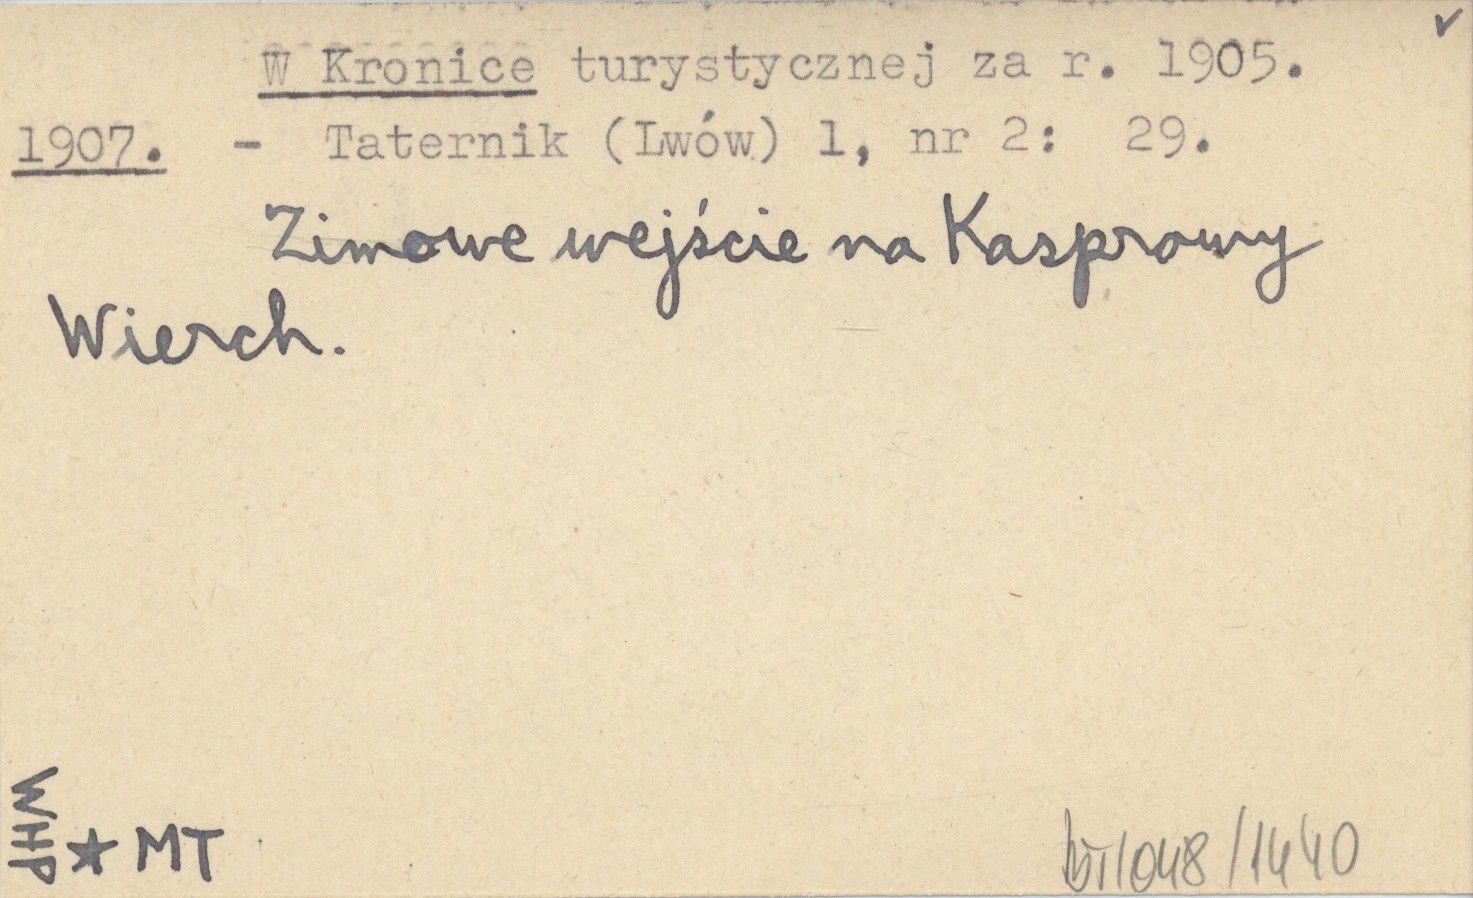 W Kronice turystycznej za r. 1905.
1907. - Taternik (Lwów) 1, nr 2: 29.
Zimowe wejście na Kasprowy
Wierch.
WHP ★ MT
/048/1440